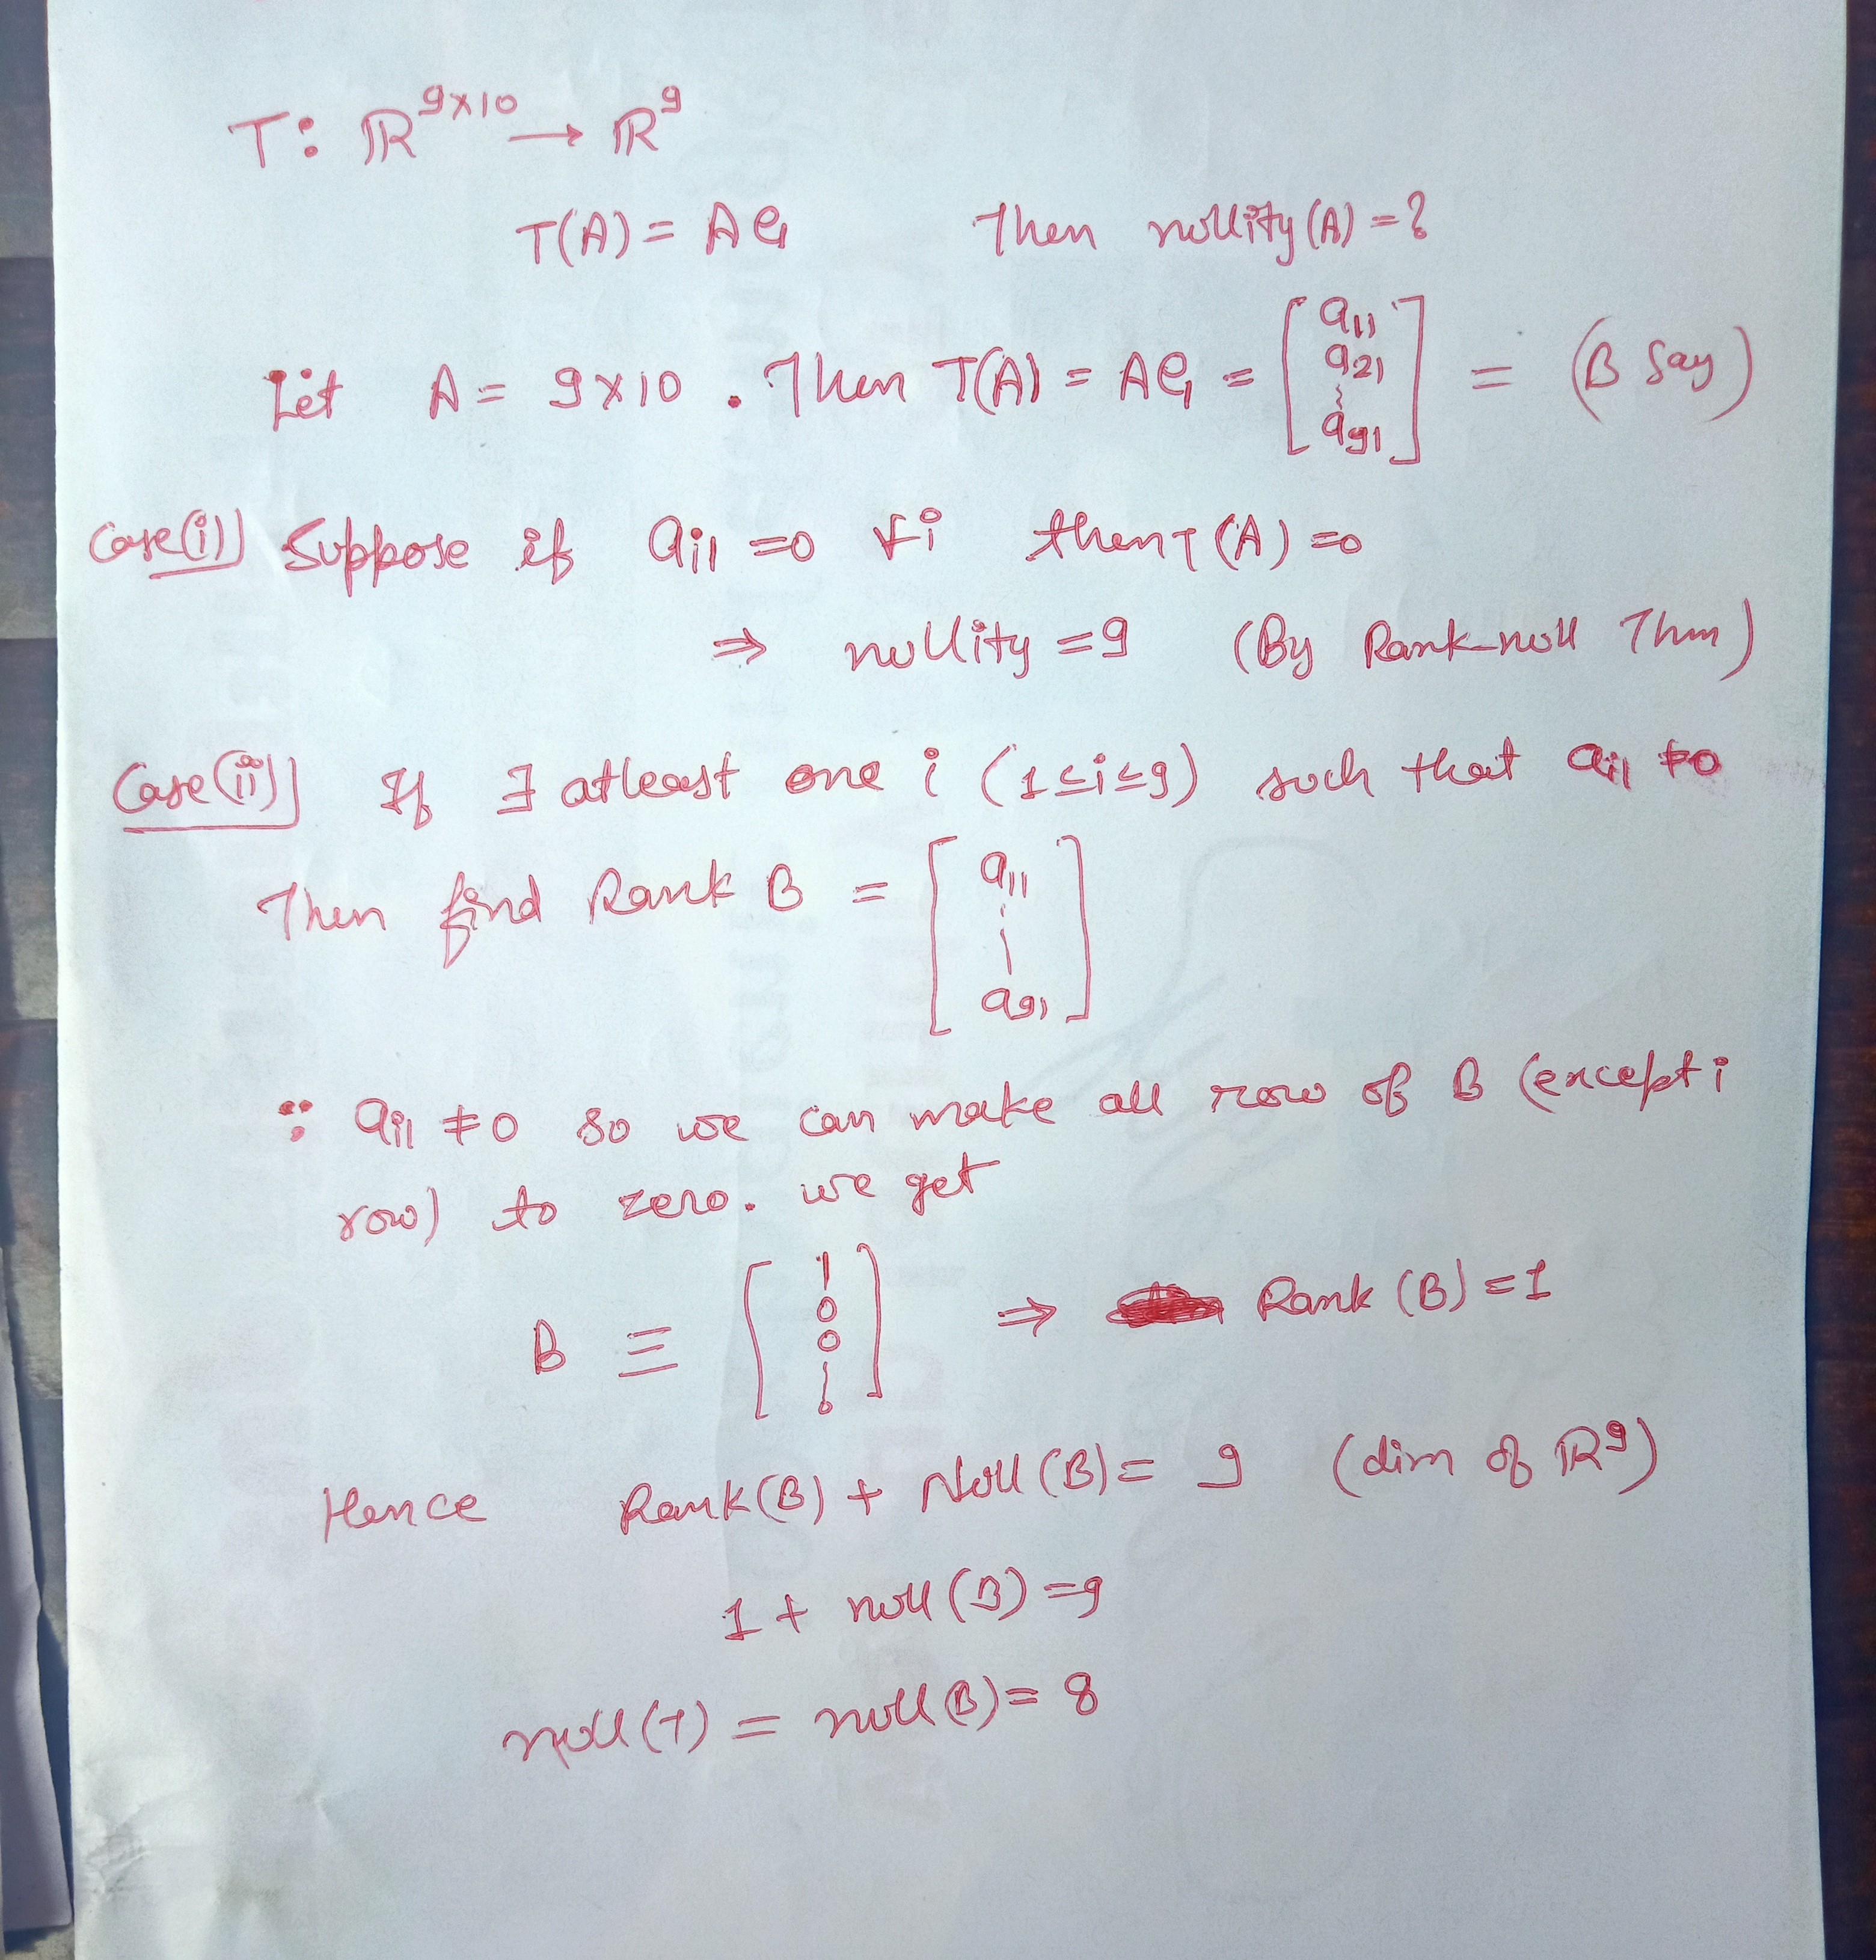 T: ℝ^{9×10} → ℝ^9
T(A) = Ae₁ Then nullity (A) = ?
Let A = 9×10 . Then T(A) = Ae₁ = [a₁₁ a₂₁ ⋮ a₉₁] = (B say)
Case(i)) Suppose if aᵢ₁ = 0 ∀i then T(A) = 0
⇒ nullity = 9 (By Rank-null Thm)
Case(ii)) If ∃ atleast one i (1≤i≤9) such that aᵢ₁ ≠ 0
Then find Rank B = [a₁₁ ⋮ a₉₁]
∵ aᵢ₁ ≠ 0 so we can make all row of B (except i
row) to zero. we get
B ≡ [1 0 0 ⋮ 0] ⇒ Rank (B) = 1
Hence Rank(B) + Null (B) = 9 (dim of ℝ^9)
1 + null (B) = 9
null (T) = null (B) = 8